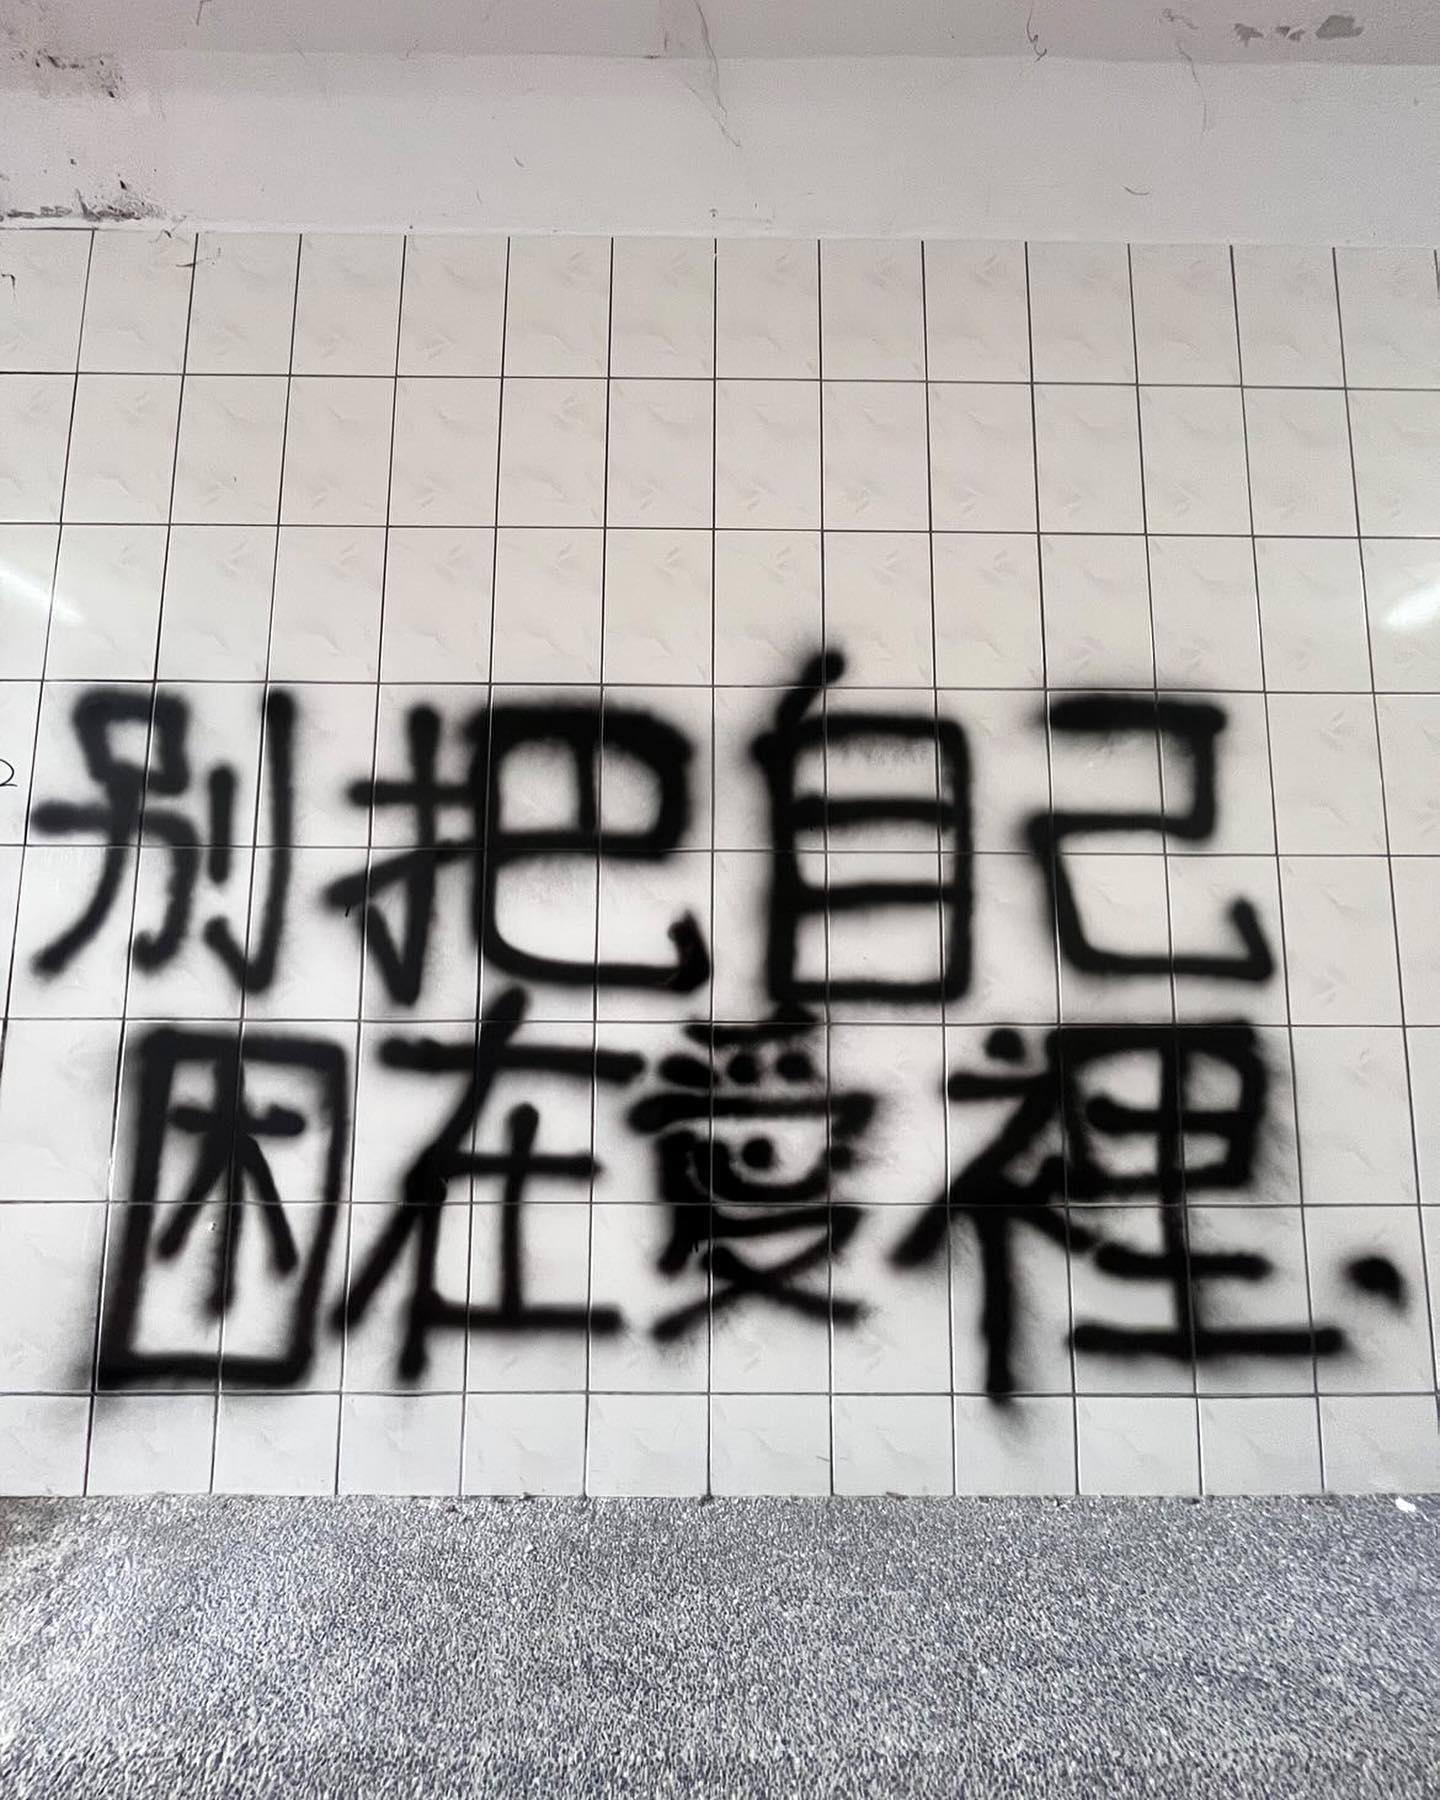 別把自己
困在愛裡.